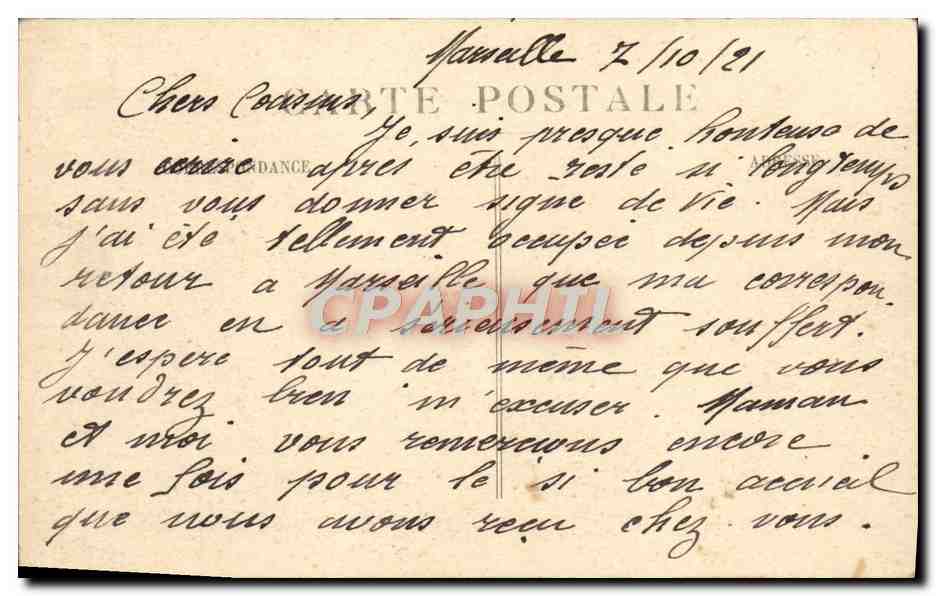 Marseille 7/10/21
Chers Cousins,
CARTE POSTALE
Je suis presque honteuse de
ADRESSE
vous écrire après être resté si longtemps
sans vous donner signe de vie. Mais
j'ai été tellement occupée depuis mon
retour a Marseille que ma correspon-
CPAPHIL
dance en a sérieusement souffert.
J'espère tout de même que vous
voudrez bien m'excuser. Maman
et moi vous remercions encore
une fois pour le si bon accueil
que nous avons reçu chez vous.